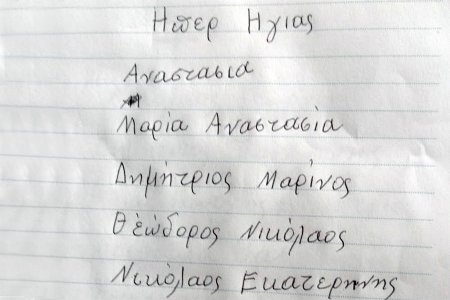 Ηπερ Ηγιας
Αναστασια
Μαρία Αναστασία
Δημήτριος Μαρίνος
Θεώδορος Νικόλαος
Νικόλαος Εκατερηνης